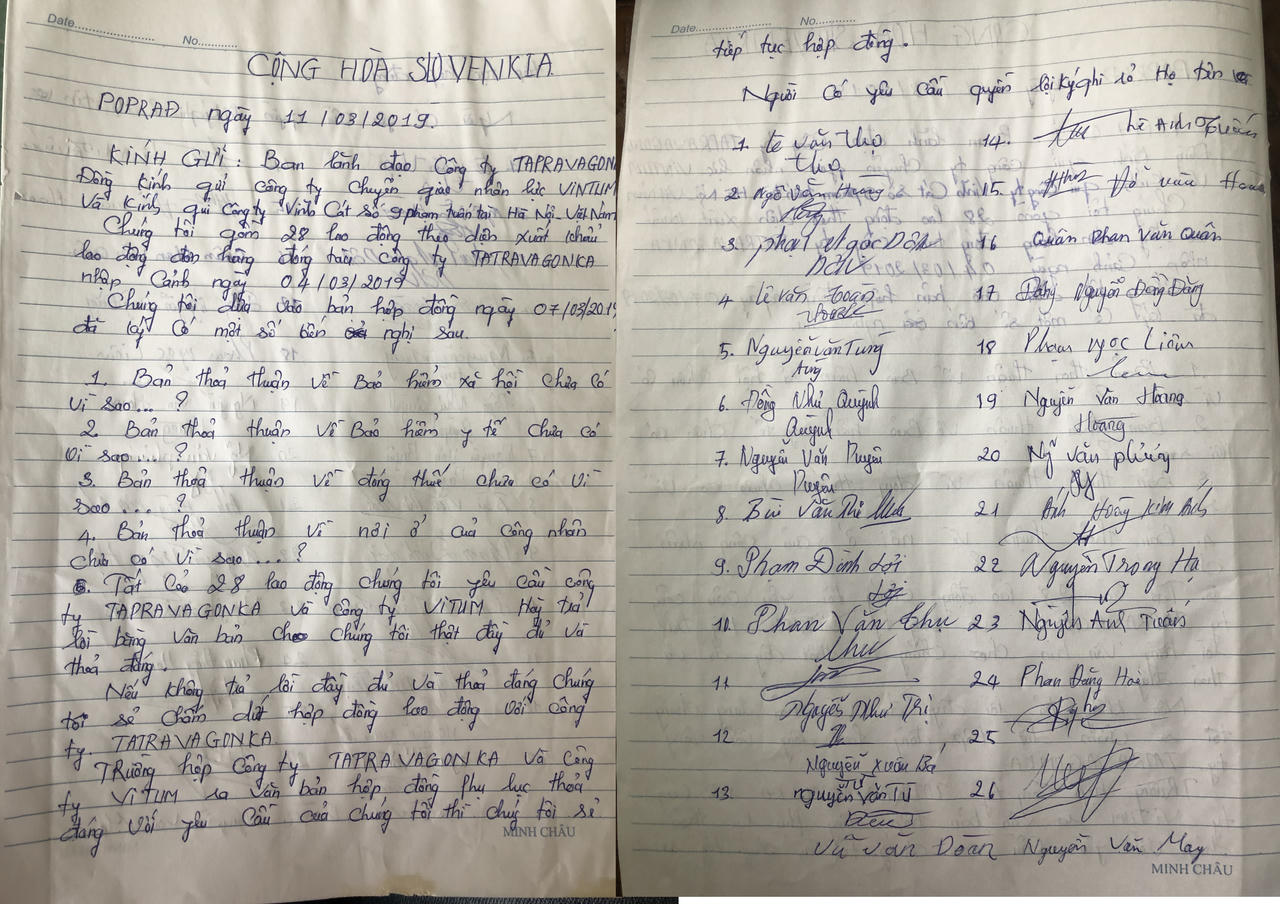 Date
No.
CỘNG HÒA SLOVENKIA
POPRAD ngày 11/03/2019.
KÍNH GỬI: Ban lãnh đạo Công ty TAPRAVAGONK
Đồng kính gửi công ty chuyển giao nhân lực VINTUM
Và kính gửi Công ty Vinh Cát số 9 phạm tuấn tài Hà Nội. Việt Nam
Chúng tôi gồm 28 lao động theo diện xuất khẩu
lao động đơn hàng đóng tàu công ty TATRAVAGONKA
nhập Cảnh ngày 04/03/2019
Chúng tôi dựa vào bản hợp đồng ngày 07/03/2019
đã ký Có một số kiến nghị sau.
1. Bản thoả thuận về Bảo hiểm xã hội chưa có
vì sao... ?
2. Bản thoả thuận về Bảo hiểm y tế chưa có
vì sao.... ?
3. Bản thoả thuận về đóng thuế chưa có vì
sao.... ?
4. Bản thoả thuận về nơi ở của công nhân
chưa có vì sao....?
5. Tất Cả 28 lao động chúng tôi yêu cầu công
ty TAPRAVAGONKA và công ty VITUM Hãy trả
lời bằng văn bản cho chúng tôi thật đầy đủ và
thoả đáng.
Nếu không trả lời đầy đủ và thoả đáng chúng
tôi sẽ chấm dứt hợp đồng lao động với công
ty. TATRAVAGONKA.
TRường hợp Công ty TAPRAVAGONKA và Công
ty VITUM ra văn bản hợp đồng phụ lục thoả
đáng với yêu cầu của chúng tôi thì chúng tôi sẽ
MINH CHÂU
Date
No.
tiếp tục hợp đồng.
Người Có yêu cầu quyền lợi ký ghi rõ Họ tên
1. Lê văn thọ
thọ
2. Ngô Văn Hường
3. phạm Ngọc Dân
4. Lê văn toàn
5. Nguyễn văn Tùng
Tùng
6. Đồng Như Quỳnh
Quỳnh
7. Nguyễn Văn Duyên
Duyên
8. Bùi Văn Thi
9. Phạm Đình Lợi
Lợi
10. Phan Văn Thụ
Thụ
11
Nguyễn Như Trị
12
Nguyễn Xuân Bá
13. nguyễn Văn Tứ
Vũ văn Đoàn
14. Lê Anh Tuấn
15. Đỗ văn Hoan
16 Quân Phan Văn Quân
17 Đăng Nguyễn Đồng Đăng
18 Phạm Ngọc Liêm
19 Nguyễn Văn Hoàng
Hoàng
20
21 Ánh Hoàng Kim Ánh
22 Nguyễn Trọng Hạ
23 Nguyễn Anh Tuấn
24 Phan Đăng Hoè
25
26
Nguyễn Văn May
MINH CHÂU